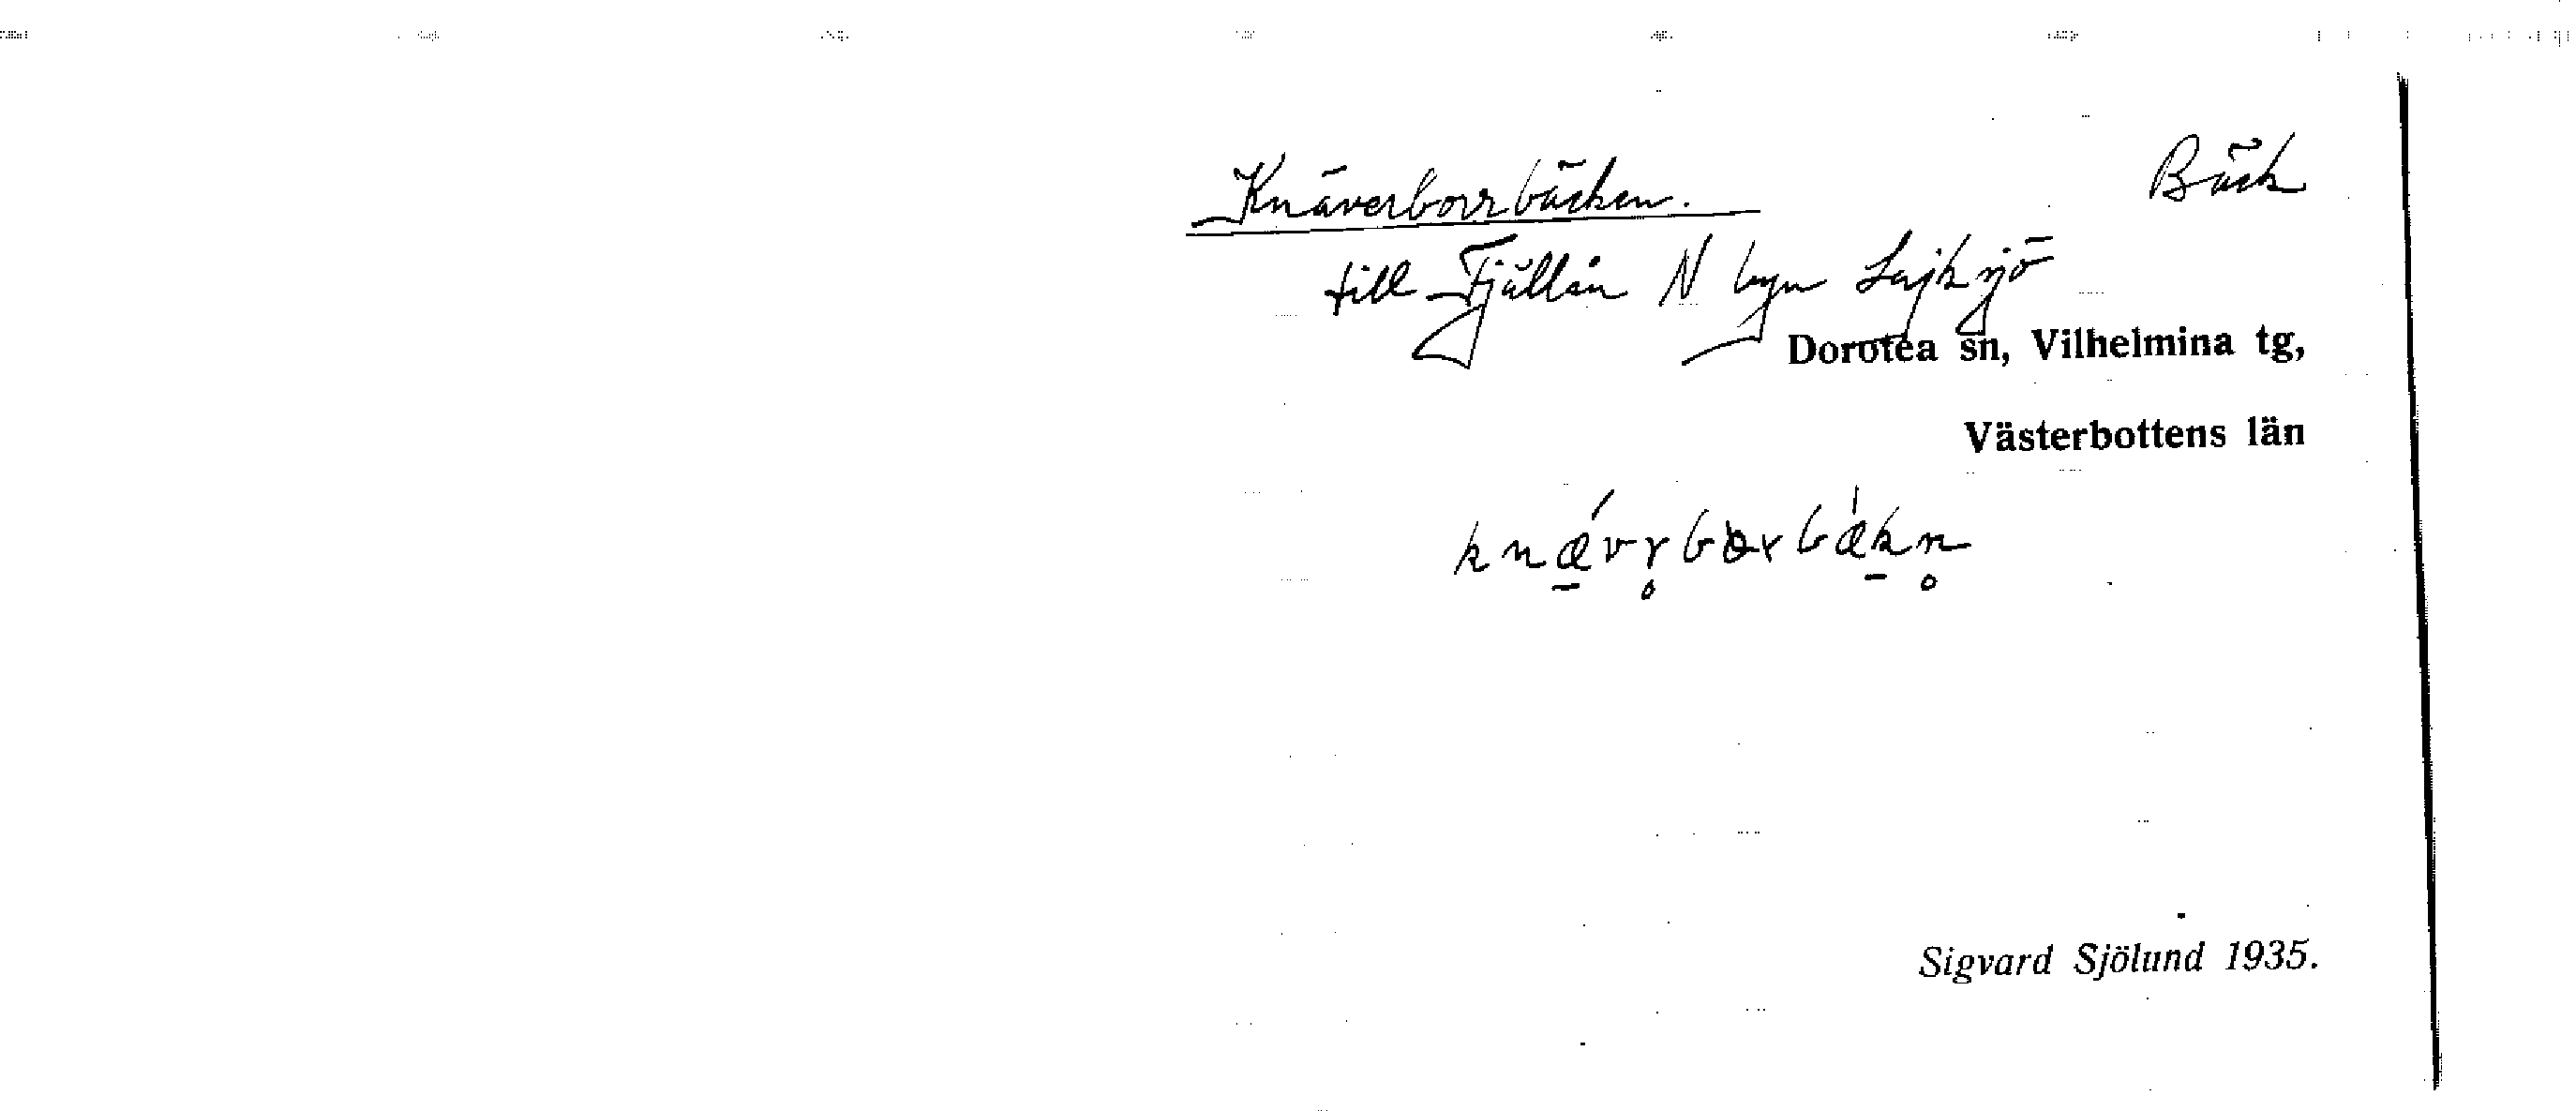 Knäverborrbäcken. Bäck
till Fjällån N byn Lajksjö
Dorotea sn, Vilhelmina tg,
Västerbottens län
Sigvard Sjölund 1935.